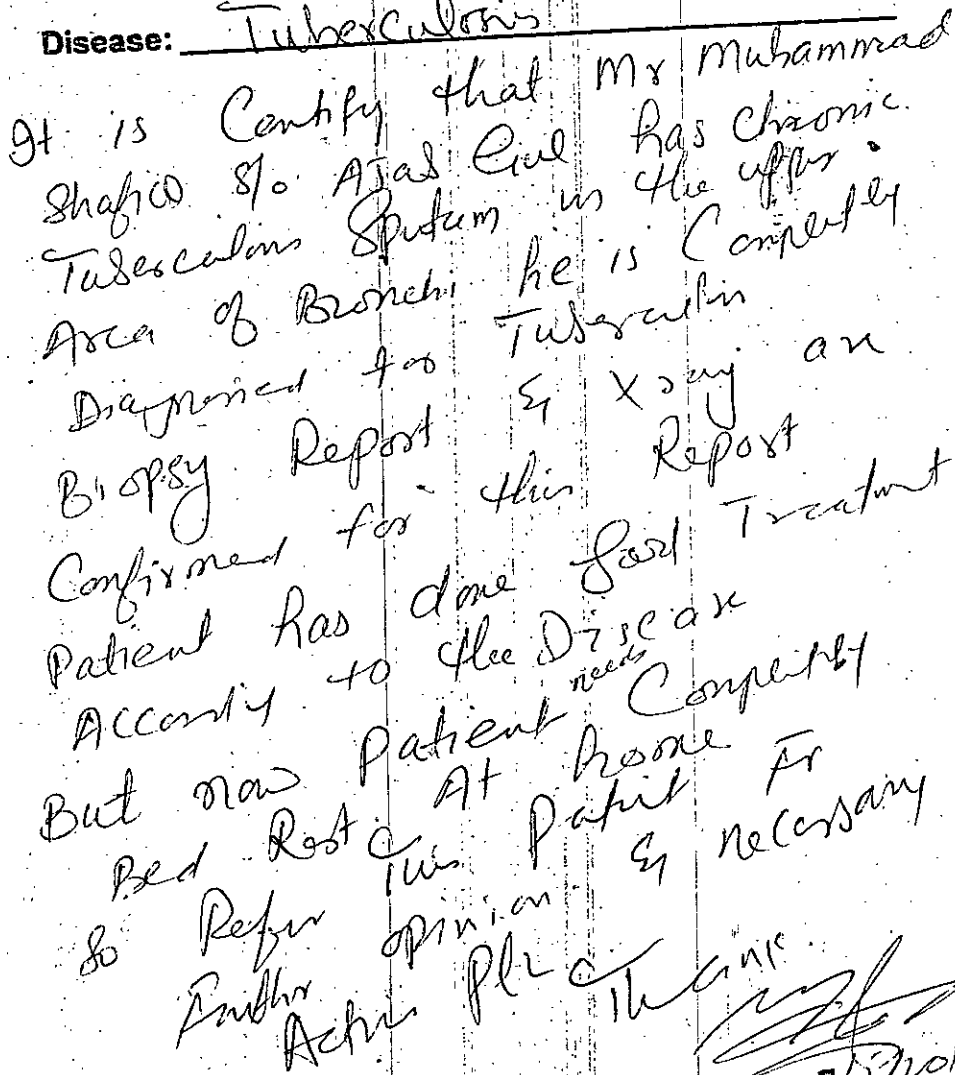 Disease: Tuberculosis
It is Contify that Mr Muhammad
Shafiq S/o Ajab Gul has chronic
Tuberculous Sputum in the upper
Area of Bronchi he is Completly
Diagnosed for Tuberculin
Biopsy Report & X ray are
Confirmed for this Report
Patient has done good Treatment
Accordig to the Disease
But now Patient needs Completly
Bed Rest At home
So Refer This Patient Fr
Further opinion & necessary
Action Plz Thank